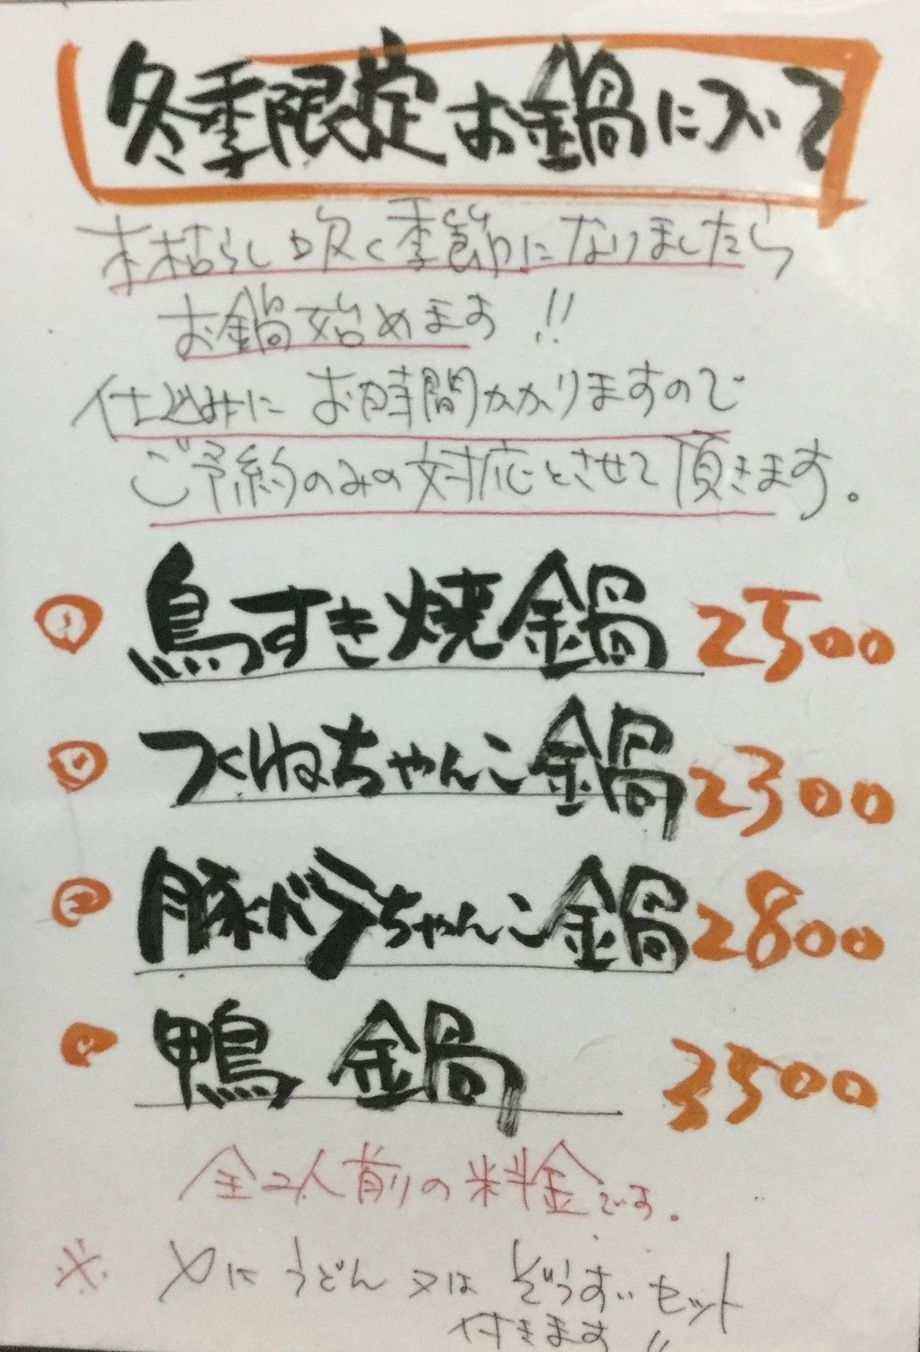 冬季限定お鍋について
木枯らし吹く季節になりましたら
お鍋始めます!!
仕込みにお時間かかりますので
ご予約のみの対応とさせて頂きます。
鳥すき焼鍋 2500
つくねちゃんこ鍋 2300
豚バラちゃんこ鍋 2800
鴨鍋 3500
全2人前の料金です。
※ 〆にうどん又はぞうすいセット
付きます!!